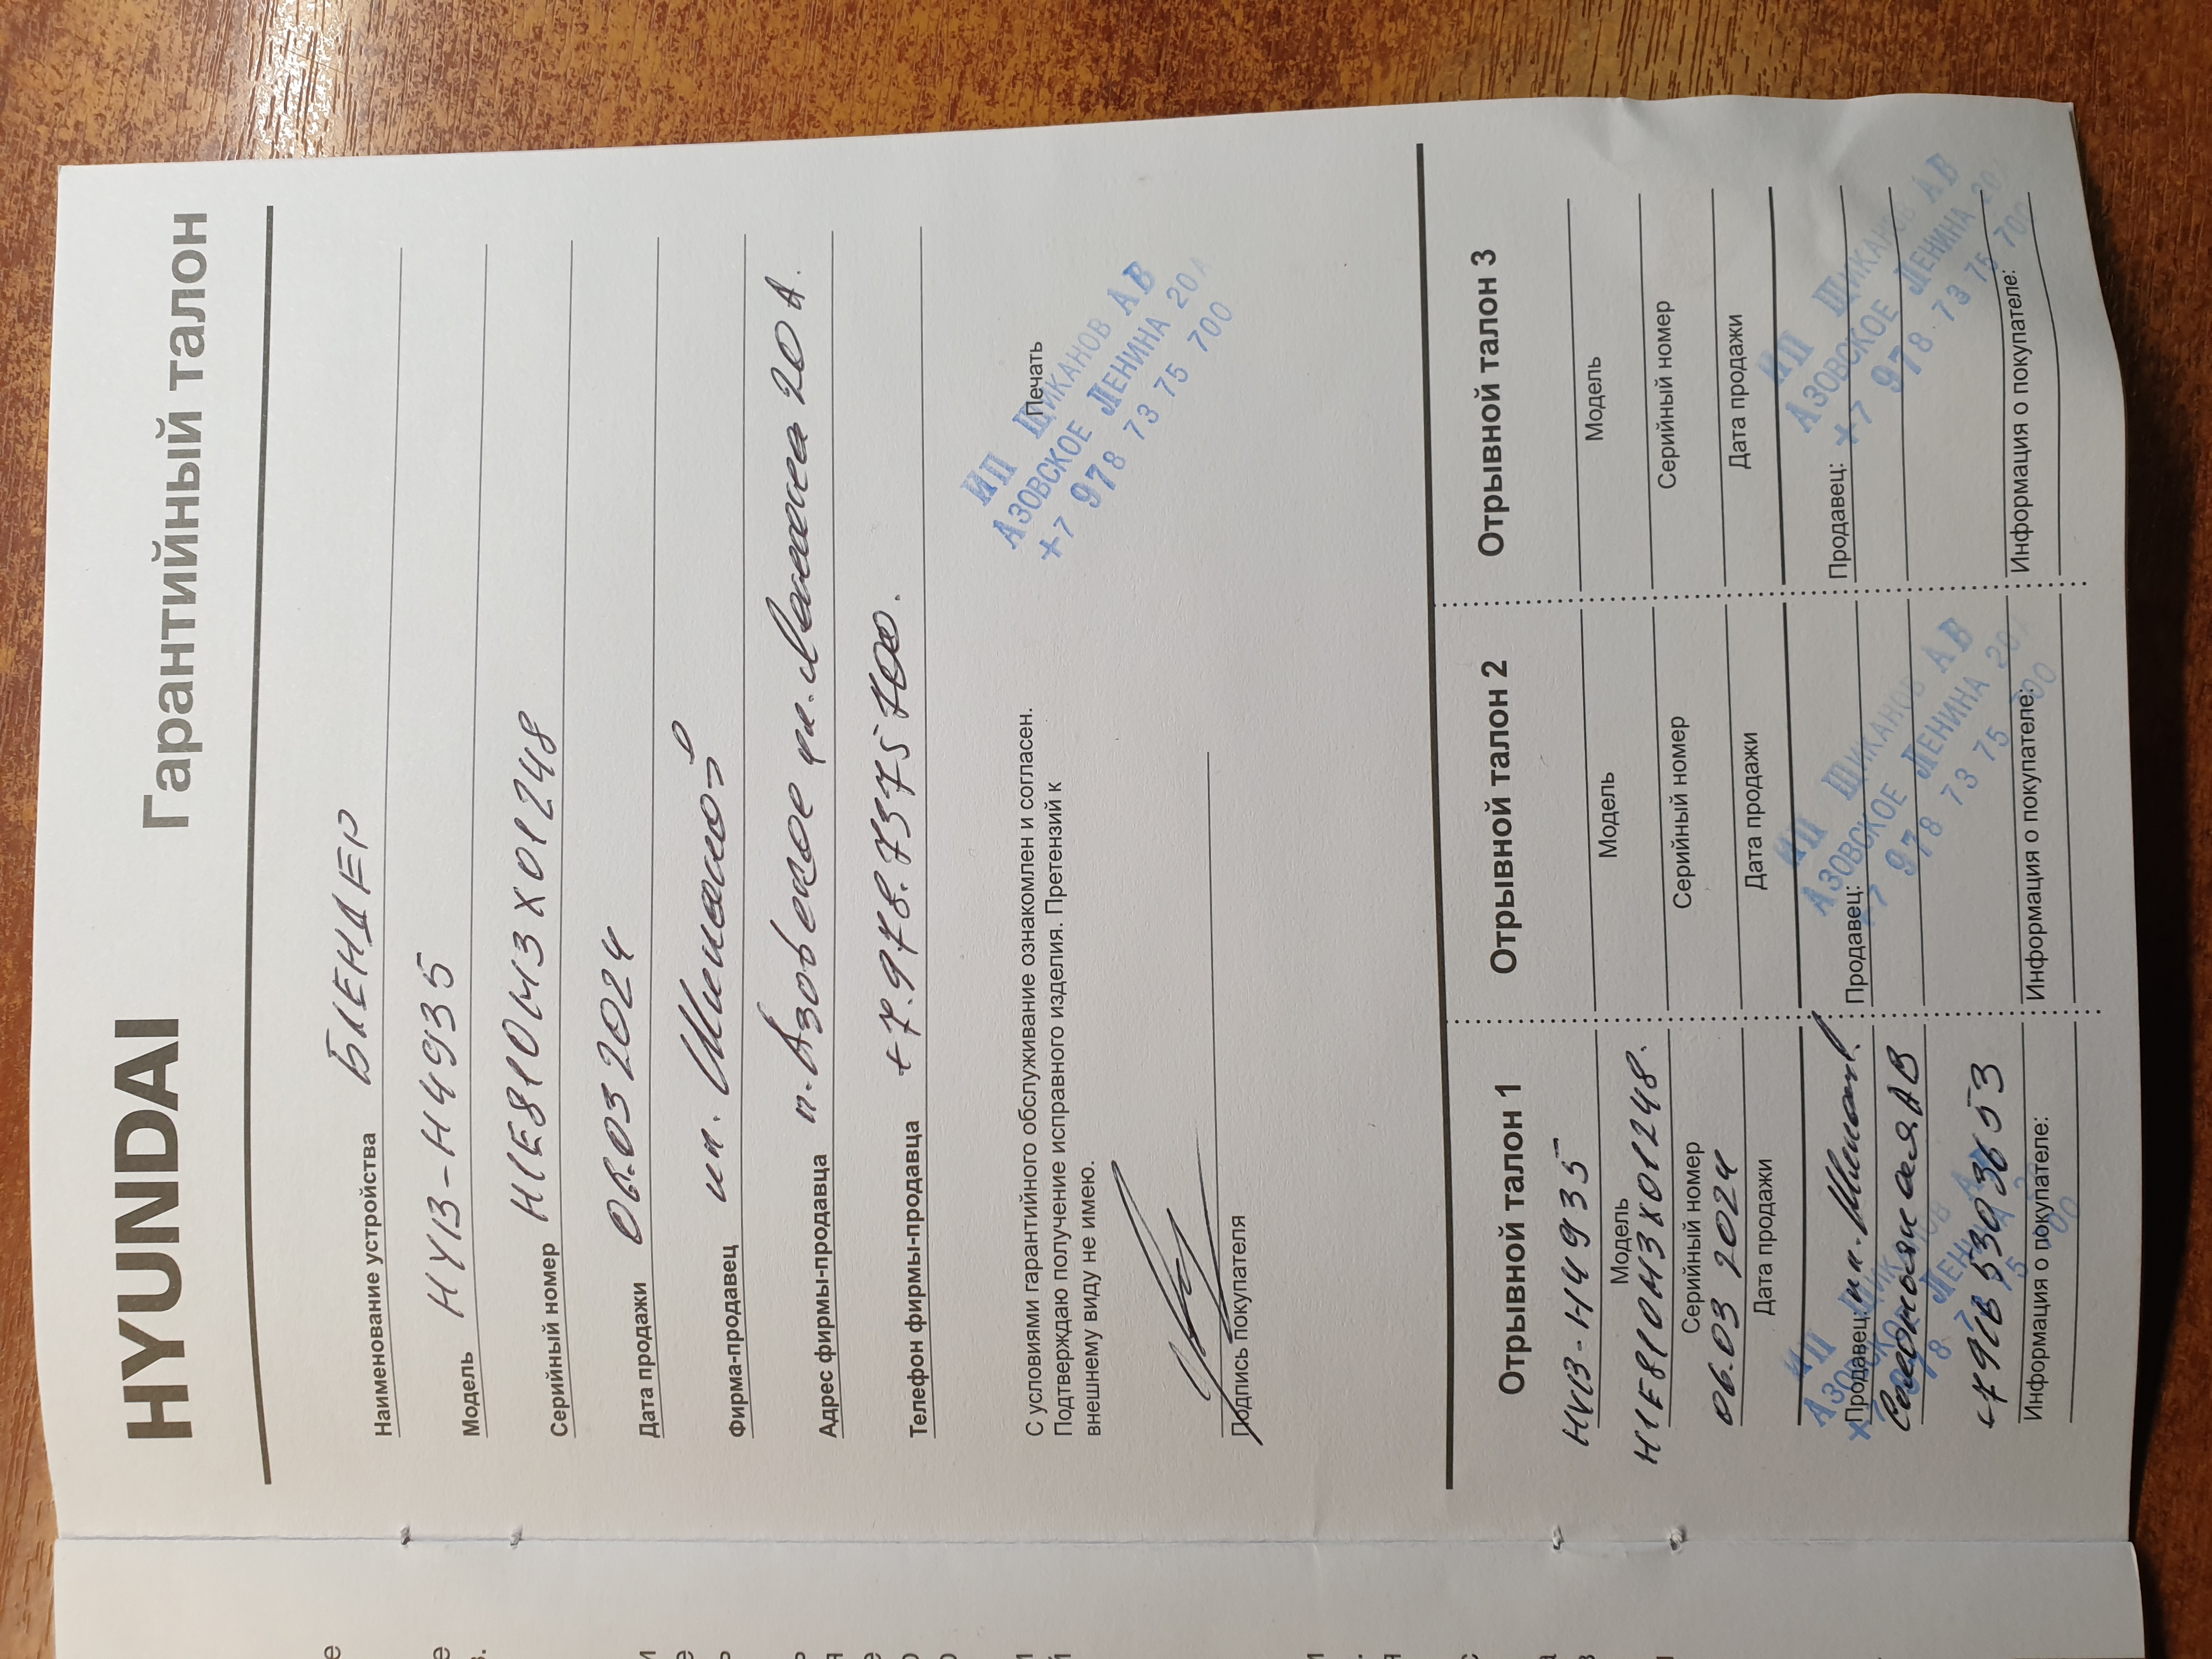 HYUNDAI Гарантийный талон
Наименование устройства БЛЕНДЕР
Модель HYB-H4935
Серийный номер H1E810M3X01248
Дата продажи 06.03 2024
Фирма-продавец ип. Шиканов
Адрес фирмы-продавца п. Азовское ул. Ленина 20 А.
Телефон фирмы-продавца +7.978.7375700.
С условиями гарантийного обслуживание ознакомлен и согласен.
Подтверждаю получение исправного изделия. Претензий к
внешнему виду не имею.
Печать
ИП ШИКАНОВ АВ
АЗОВСКОЕ ЛЕНИНА 20А
+7 978 73 75 700
Подпись покупателя
Отрывной талон 1
HYB-H4935
Модель
H1E810M3X01248.
Серийный номер
06.03 2024
Дата продажи
Продавец: ип. Шиканов
АВ
Информация о покупателе:
Отрывной талон 2
Модель
Серийный номер
Дата продажи
Продавец:
ИП ШИКАНОВ АВ
АЗОВСКОЕ ЛЕНИНА 20
+7 978 73 75 700
Информация о покупателе:
Отрывной талон 3
Модель
Серийный номер
Дата продажи
Продавец:
ИП ШИКАНОВ АВ
АЗОВСКОЕ ЛЕНИНА 20
+7 978 73 75 700
Информация о покупателе: